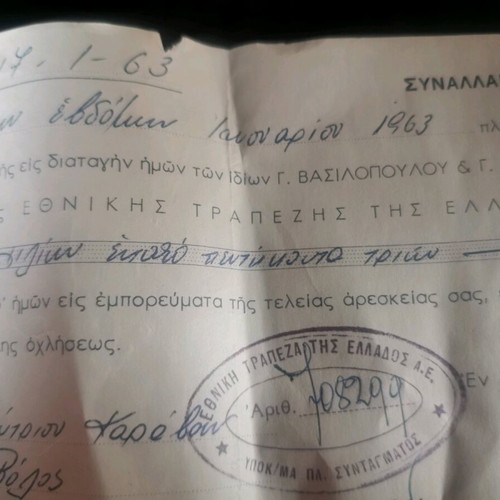 7-1-63
ΣΥΝΑΛΛΑ
ἑβδόμην Ἰανουαρίου 1963 πλ
ῆς εἰς διαταγὴν ἡμῶν τῶν ἰδίων Γ. ΒΑΣΙΛΟΠΟΥΛΟΥ & Γ.
ς ΕΘΝΙΚΗΣ ΤΡΑΠΕΖΗΣ ΤΗΣ ΕΛΛ
χιλίων ἑπτακ πεντήκοντα τριῶν
ἡμῶν εἰς ἐμπορεύματα τῆς τελείας ἀρεσκείας σας,
ης ὀχλήσεως.
ΕΘΝΙΚΗ ΤΡΑΠΕΖΑ ΤΗΣ ΕΛΛΑΔΟΣ Α.Ε.
Ἐν
Ἀριθ. 708299
ΥΠΟΚ/ΜΑ ΠΛ. ΣΥΝΤΑΓΜΑΤΟΣ
Βόλος